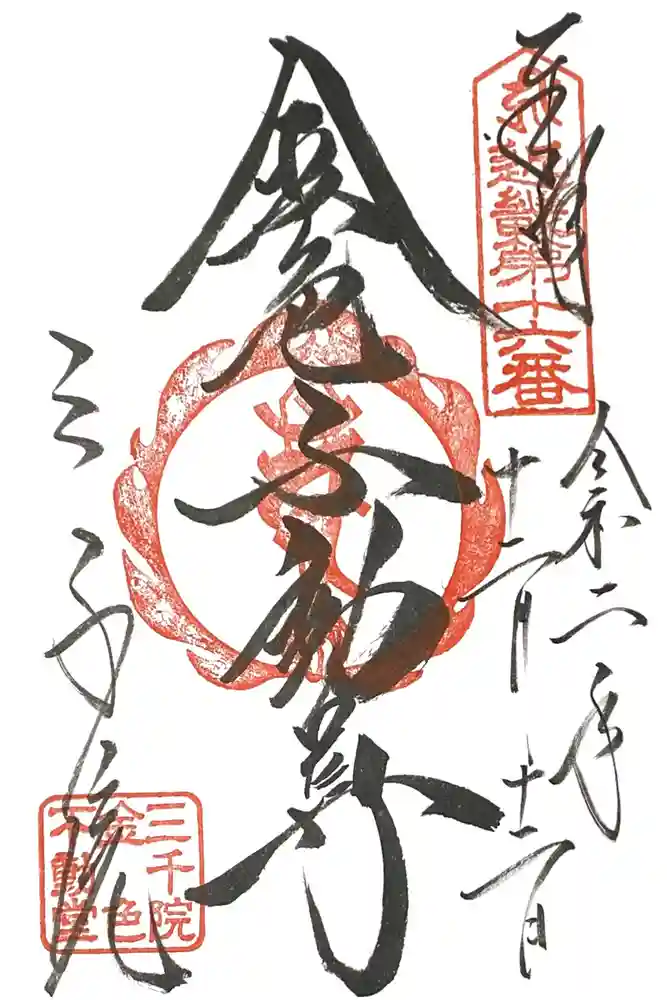 奉拝
近畿三十六不動尊第十六番
令和二年
十一月十二日
金色不動尊
三千院
三千院
金色
不動堂